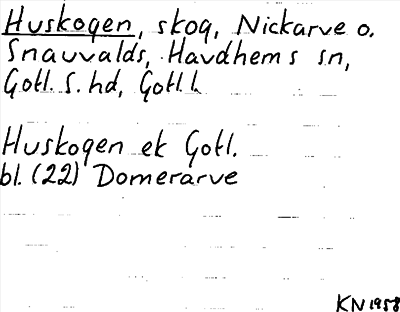 Huskogen, skog, Nickarve o.
Snauvalds, Havdhems sn,
Gotl. S. hd, Gotl. l.
Huskogen ek Gotl.
bl. (22) Domerarve
KN 1958